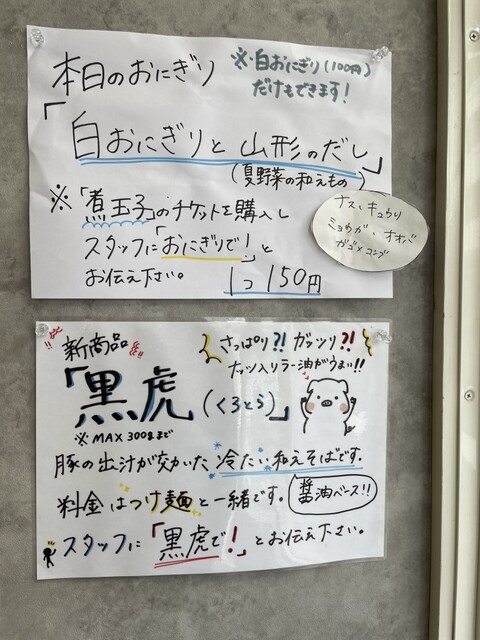 本日のおにぎり
※白おにぎり(100円)
だけもできます!
「白おにぎりと山形のだし」
(夏野菜の和えもの)
ナス、キュウリ
ミョウガ、オオバ
ガゴメコンブ
※「煮玉子」のチケットを購入し
スタッフに「おにぎりで!」と
お伝え下さい。
1つ150円
新商品
さっぱり?! ガッツリ?!
ナッツ入りラー油がうまい!!
「黒虎(くろとら)」
※MAX 300gまで
豚の出汁が効いた冷たい和えそばです。
料金はつけ麺と一緒です。
醤油ベース!!
スタッフに「黒虎で!」とお伝え下さい。